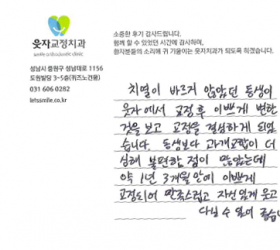 웃자교정치과
성남시 중원구 성남대로 1156
도원빌딩 3-5층(위즈노건물)
031 606 0282
letssmile.co.kr
소중한 후기 감사드립니다.
함께 할 수 있었던 시간에 감사하며,
환자분들의 소리에 귀 기울이는 웃자치과가 되도록 하겠습니다.
치열이 바르지 않았던 동생이
웃자에서 교정 후 이쁘게 변한
것을 보고 교정을 결심하게 되었
습니다. 동생보다 과개교합이 더
심해 불편한 점이 많았는데
약 1년 3개월 만에 이쁘게
교정되어 만족스럽고 자신있게 웃고
다닐 수 있어